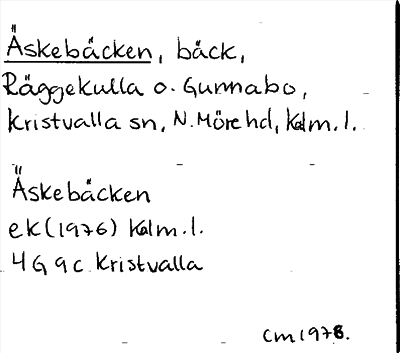 Äskebäcken, bäck,
Räggekulla o. Gunnabo,
Kristvalla sn, N. Möre hd, Kalm. l.
Äskebäcken
ek (1976) Kalm. l.
4G 9c Kristvalla
CM 1978.